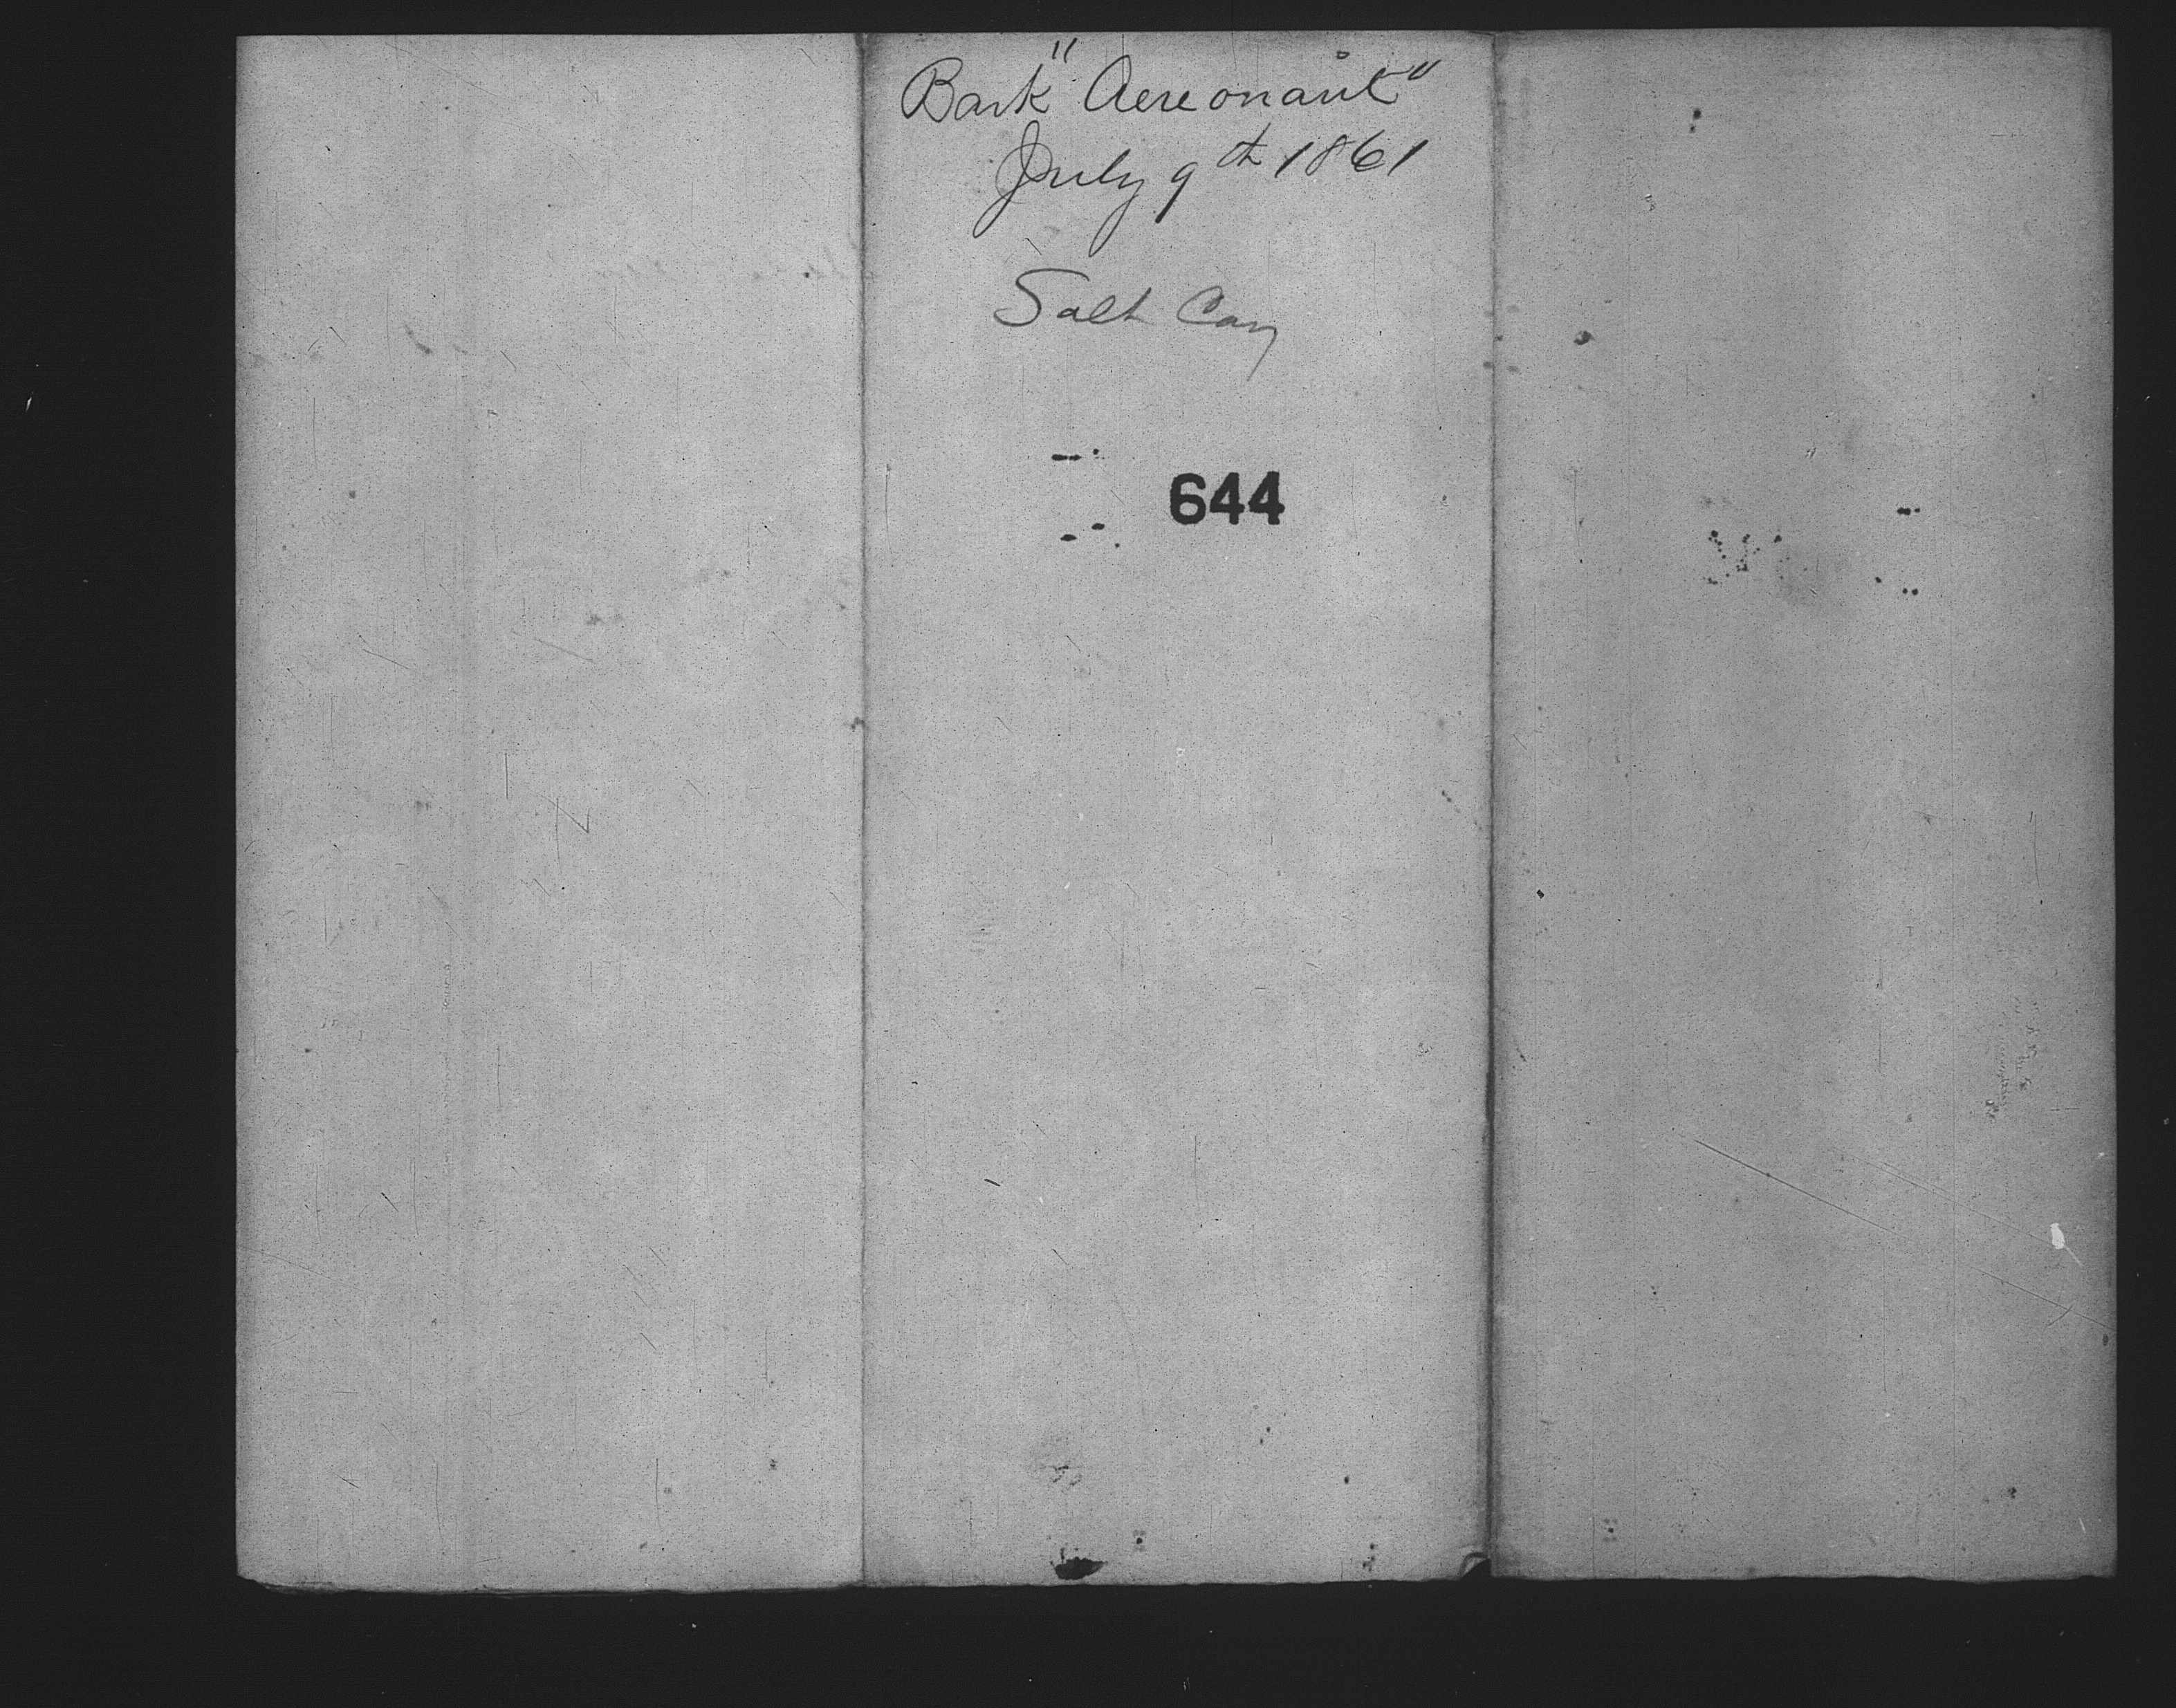 Bark "Aereonaut"
July 9th 1861
Salt Cay
644